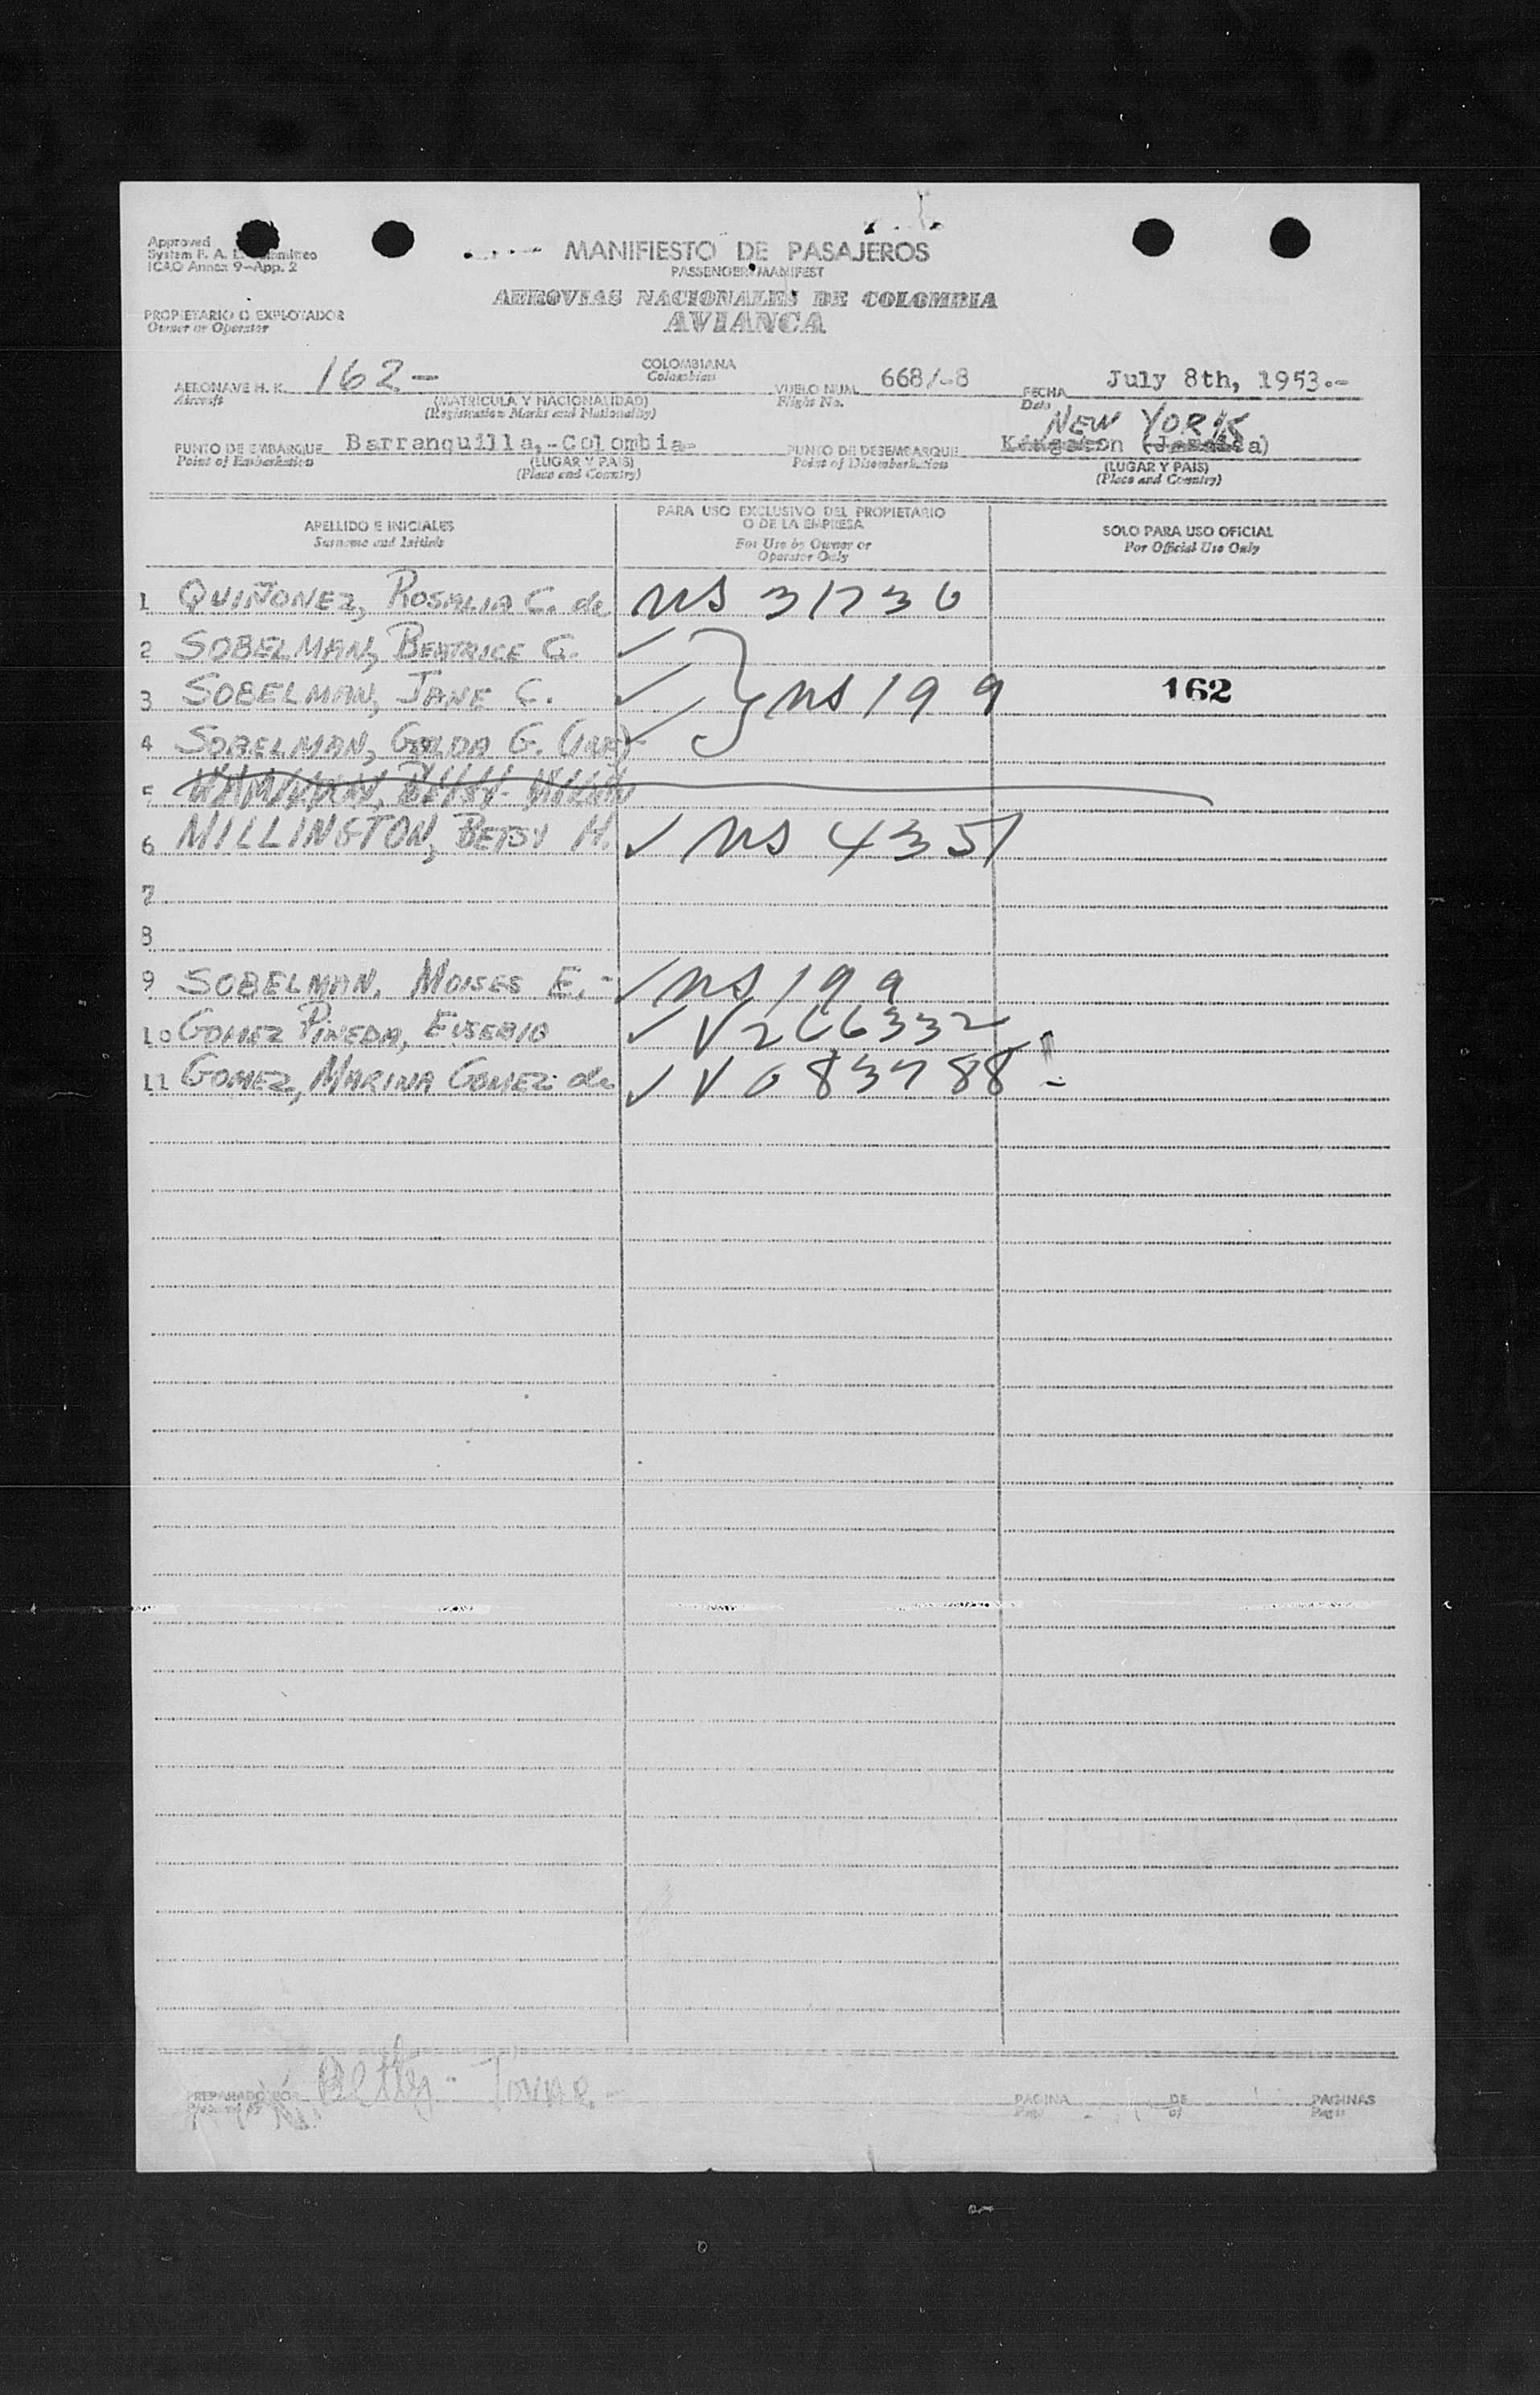 Approved
System F. A. L. Committee
ICAO Annex 9-App. 2
MANIFIESTO DE PASAJEROS
PASSENGER MANIFEST
AEROVIAS NACIONALES DE COLOMBIA
AVIANCA
PROPIETARIO O EXPLOTADOR
Owner or Operator
AERONAVE H. K. 162- COLOMBIANA VUELO NUM. 668/-8 FECHA July 8th, 1953.-
Aircraft Colombian Flight No. Date
(MATRICULA Y NACIONALIDAD)
(Registration Marks and Nationality)
NEW YORK
PUNTO DE EMBARQUE Barranquilla,-Colombia- PUNTO DE DESEMBARQUE Kingston (Jamaica)
Point of Embarkation (LUGAR Y PAIS) Point of Disembarkation (LUGAR Y PAIS)
(Place and Country) (Place and Country)
APELLIDO E INICIALES
Surname and Initials
PARA USO EXCLUSIVO DEL PROPIETARIO
O DE LA EMPRESA
For Use by Owner or
Operator Only
SOLO PARA USO OFICIAL
For Official Use Only
1 QUIÑONEZ, ROSALIA C. de NS 31736
2 SOBELMAN, BEATRICE G. ✓
3 SOBELMAN, JANE C. ✓ } NS 199 162
4 SOBELMAN, GOLDA G. (INF)- ✓
5
6 MILLINGTON, BETSY H. ✓ NS 4351
7
8
9 SOBELMAN, MOISES E.- ✓ NS 199
10 GOMEZ PINEDA, EUSEBIO ✓ V 266332
11 GOMEZ, MARINA GOMEZ de ✓ V 083788 -
PREPARADO POR Betty - PAGINA DE PAGINAS
Prepared by Page of Pages